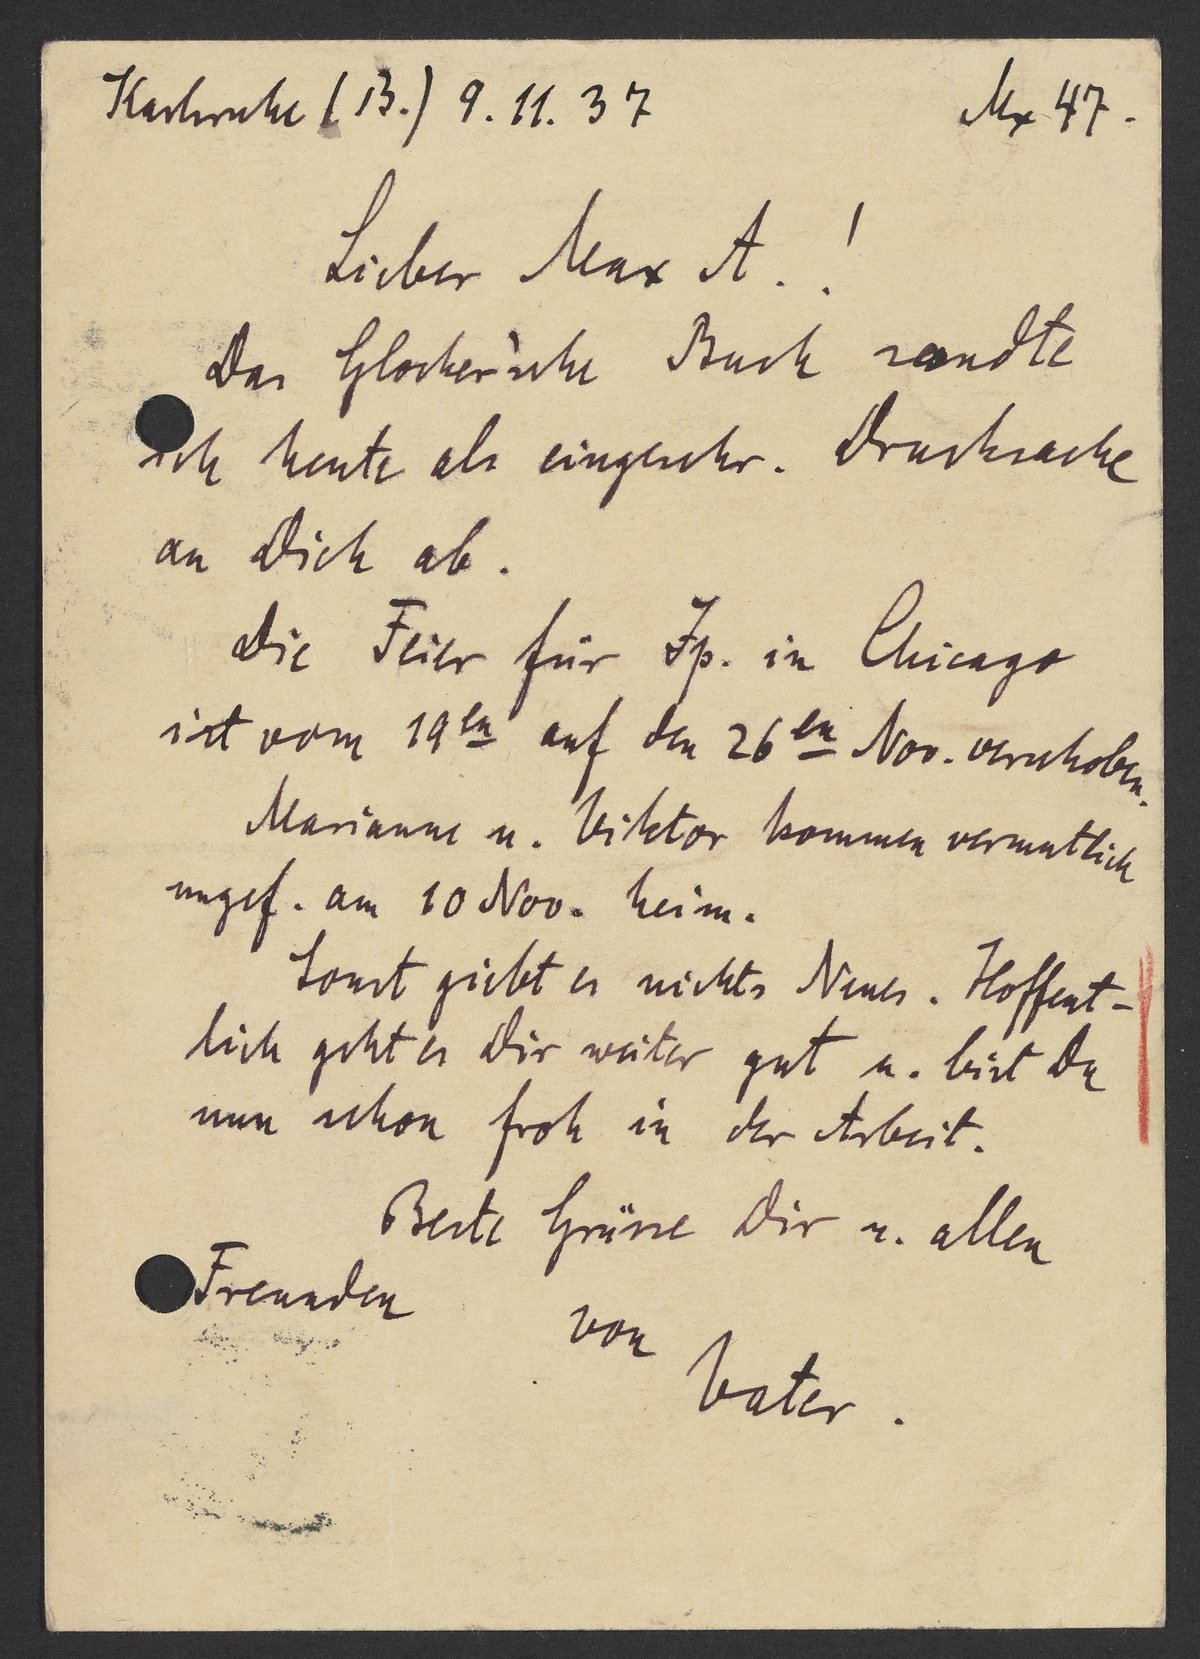 Karlsruhe (B.) 9.11.37 Mx 47.
Lieber Max A.!
Das Glocker'sche Buch sandte
ich heute als eingeschr. Drucksache
an Dich ab.
Die Feier für Zp. in Chicago
ist vom 19en auf den 26en Nov. verschoben.
Marianne u. Viktor kommen vermutlich
ungef. am 10 Nov. heim.
Sonst giebt es nichts Neues. Hoffent-
lich geht es Dir weiter gut u. bist Du
nun schon froh in der Arbeit.
Beste Grüsse Dir u. allen
Freunden
von
Vater.